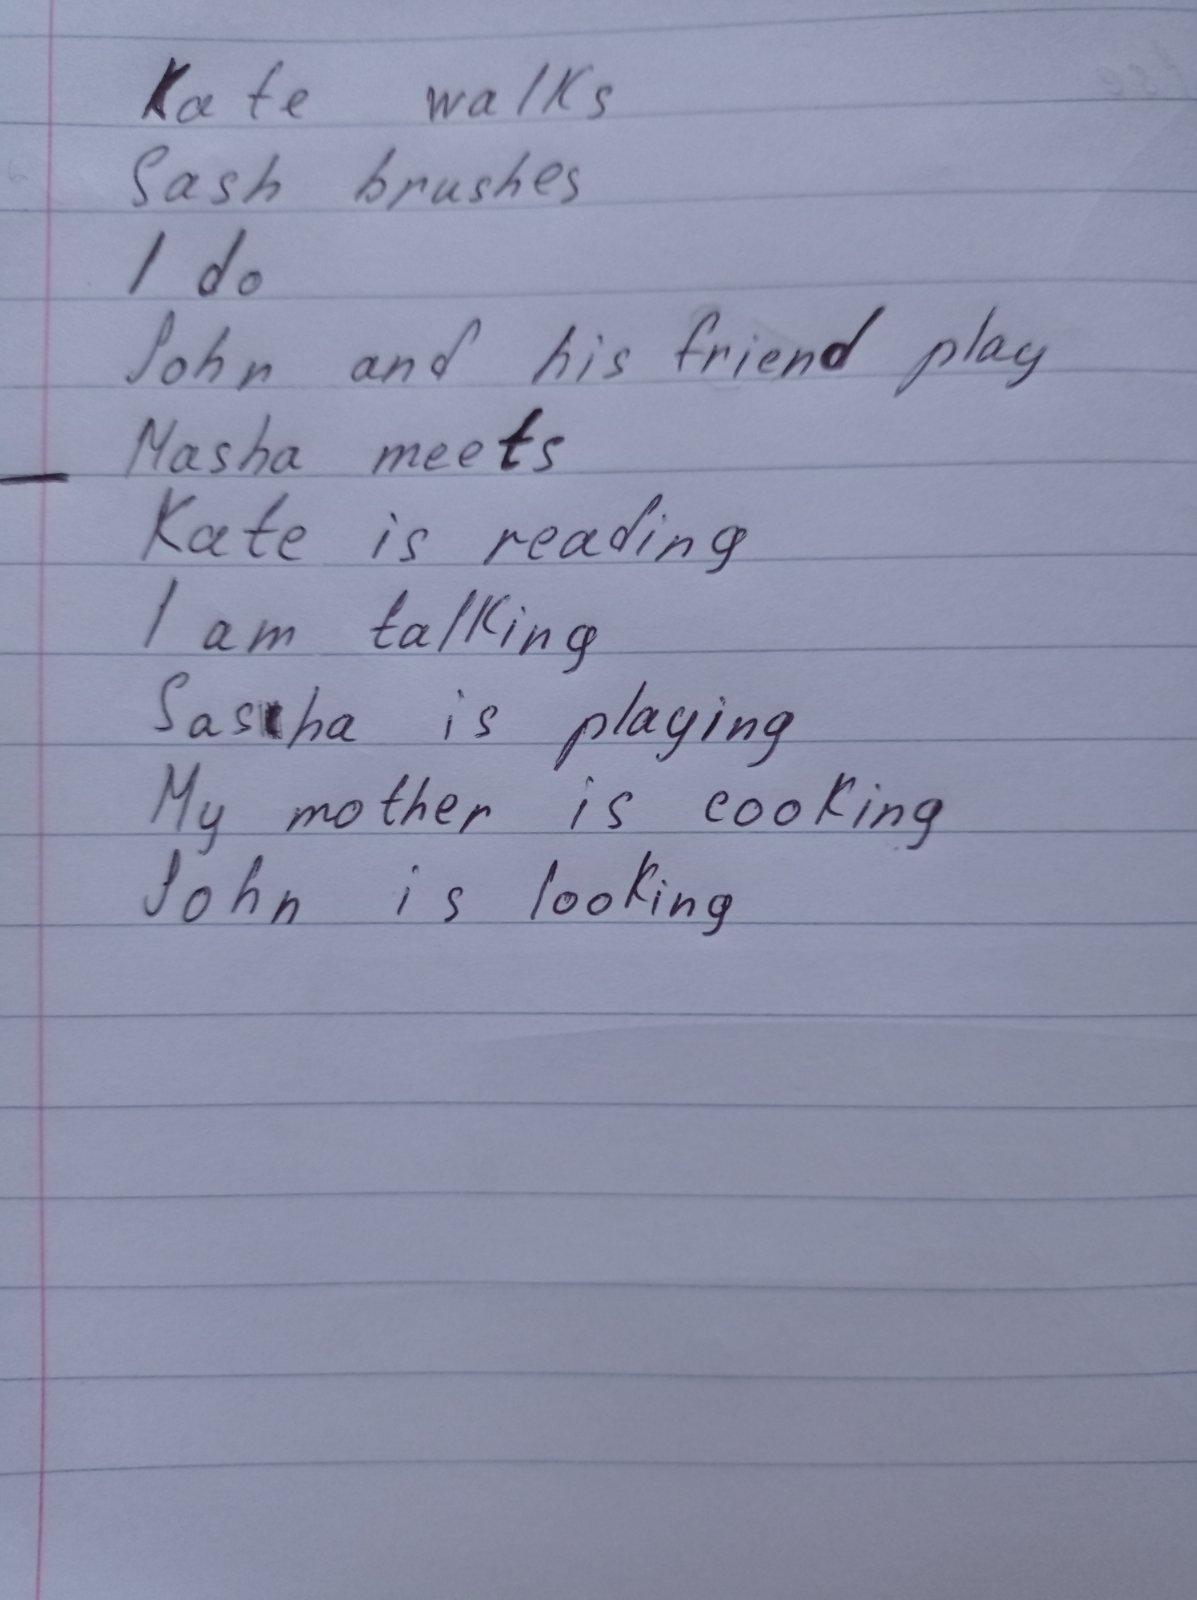 Kate walks
Sash brushes
I do
John and his friend play
Masha meets
Kate is reading
I am talking
Sasha is playing
My mother is cooking
John is looking